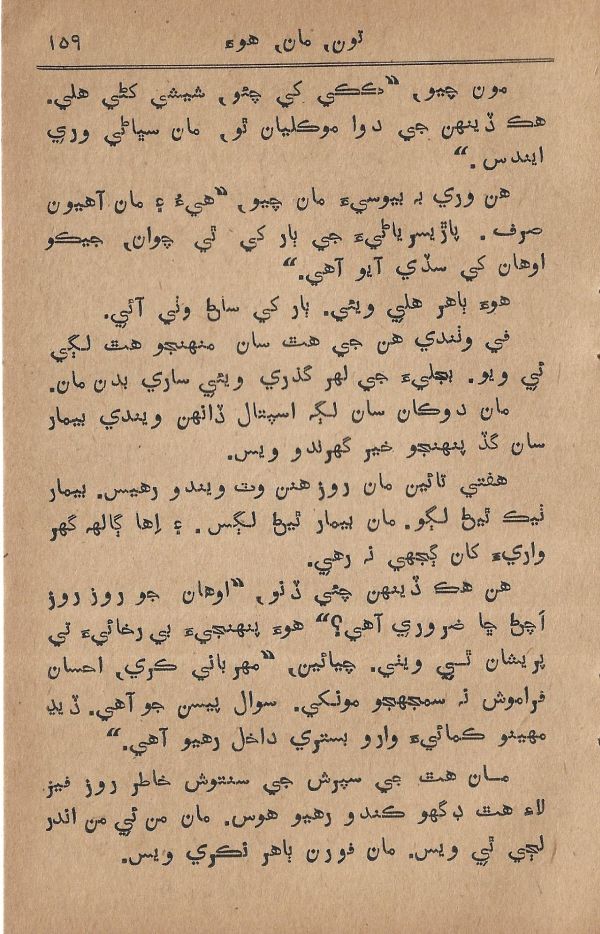 تون, مان, هوءَ
١٥٩
مون چيو, ”ڪڪي کي چئو, شيشي کڻي هلي.
هڪ ڏينهن جي دوا موڪليان ٿو, مان سڀاڻي وري
ايندس.“
هن وري به بيوسيءَ مان چيو, ”هيءُ ۽ مان آهيون
صرف. پاڙيسرياڻيءَ جي ٻار کي ٿي چوان, جيڪو
اوهان کي سڏي آيو آهي.“
هوءَ ٻاهر هلي ويئي. ٻار کي ساڻ وٺي آئي.
في وٺندي هن جي هٿ سان منهنجو هٿ لڳي
ئي ويو. بجليءَ جي لهر گذري ويئي ساري بدن مان.
مان دوڪان سان لڳ اسپتال ڏانهن ويندي بيمار
سان گڏ پنهنجو خير گهرندو ويس.
هفتي تائين مان روز هنن وٽ ويندو رهيس. بيمار
ٺيڪ ٿيڻ لڳو. مان بيمار ٿيڻ لڳس. ۽ اِها ڳالهه گهر
واريءَ کان ڳجهي نه رهي.
هن هڪ ڏينهن چئي ڏنو, ”اوهان جو روز روز
اَچڻ ڇا ضروري آهي؟“ هوءَ پنهنجيءَ بي رخائيءَ تي
پريشان ٿي ويئي. چيائين, ”مهرباني ڪري, احسان
فراموش نه سمجهجو مونکي. سوال پيسن جو آهي. ڏيڍ
مهينو ڪمائيءَ وارو بستري داخل رهيو آهي.“
مان هٿ جي سپرش جي سنتوش خاطر روز فيز
لاءِ هٿ ڊگهو ڪندو رهيو هوس. مان من ئي من اندر
لڄي ٿي ويس. مان فورن ٻاهر نڪري ويس.